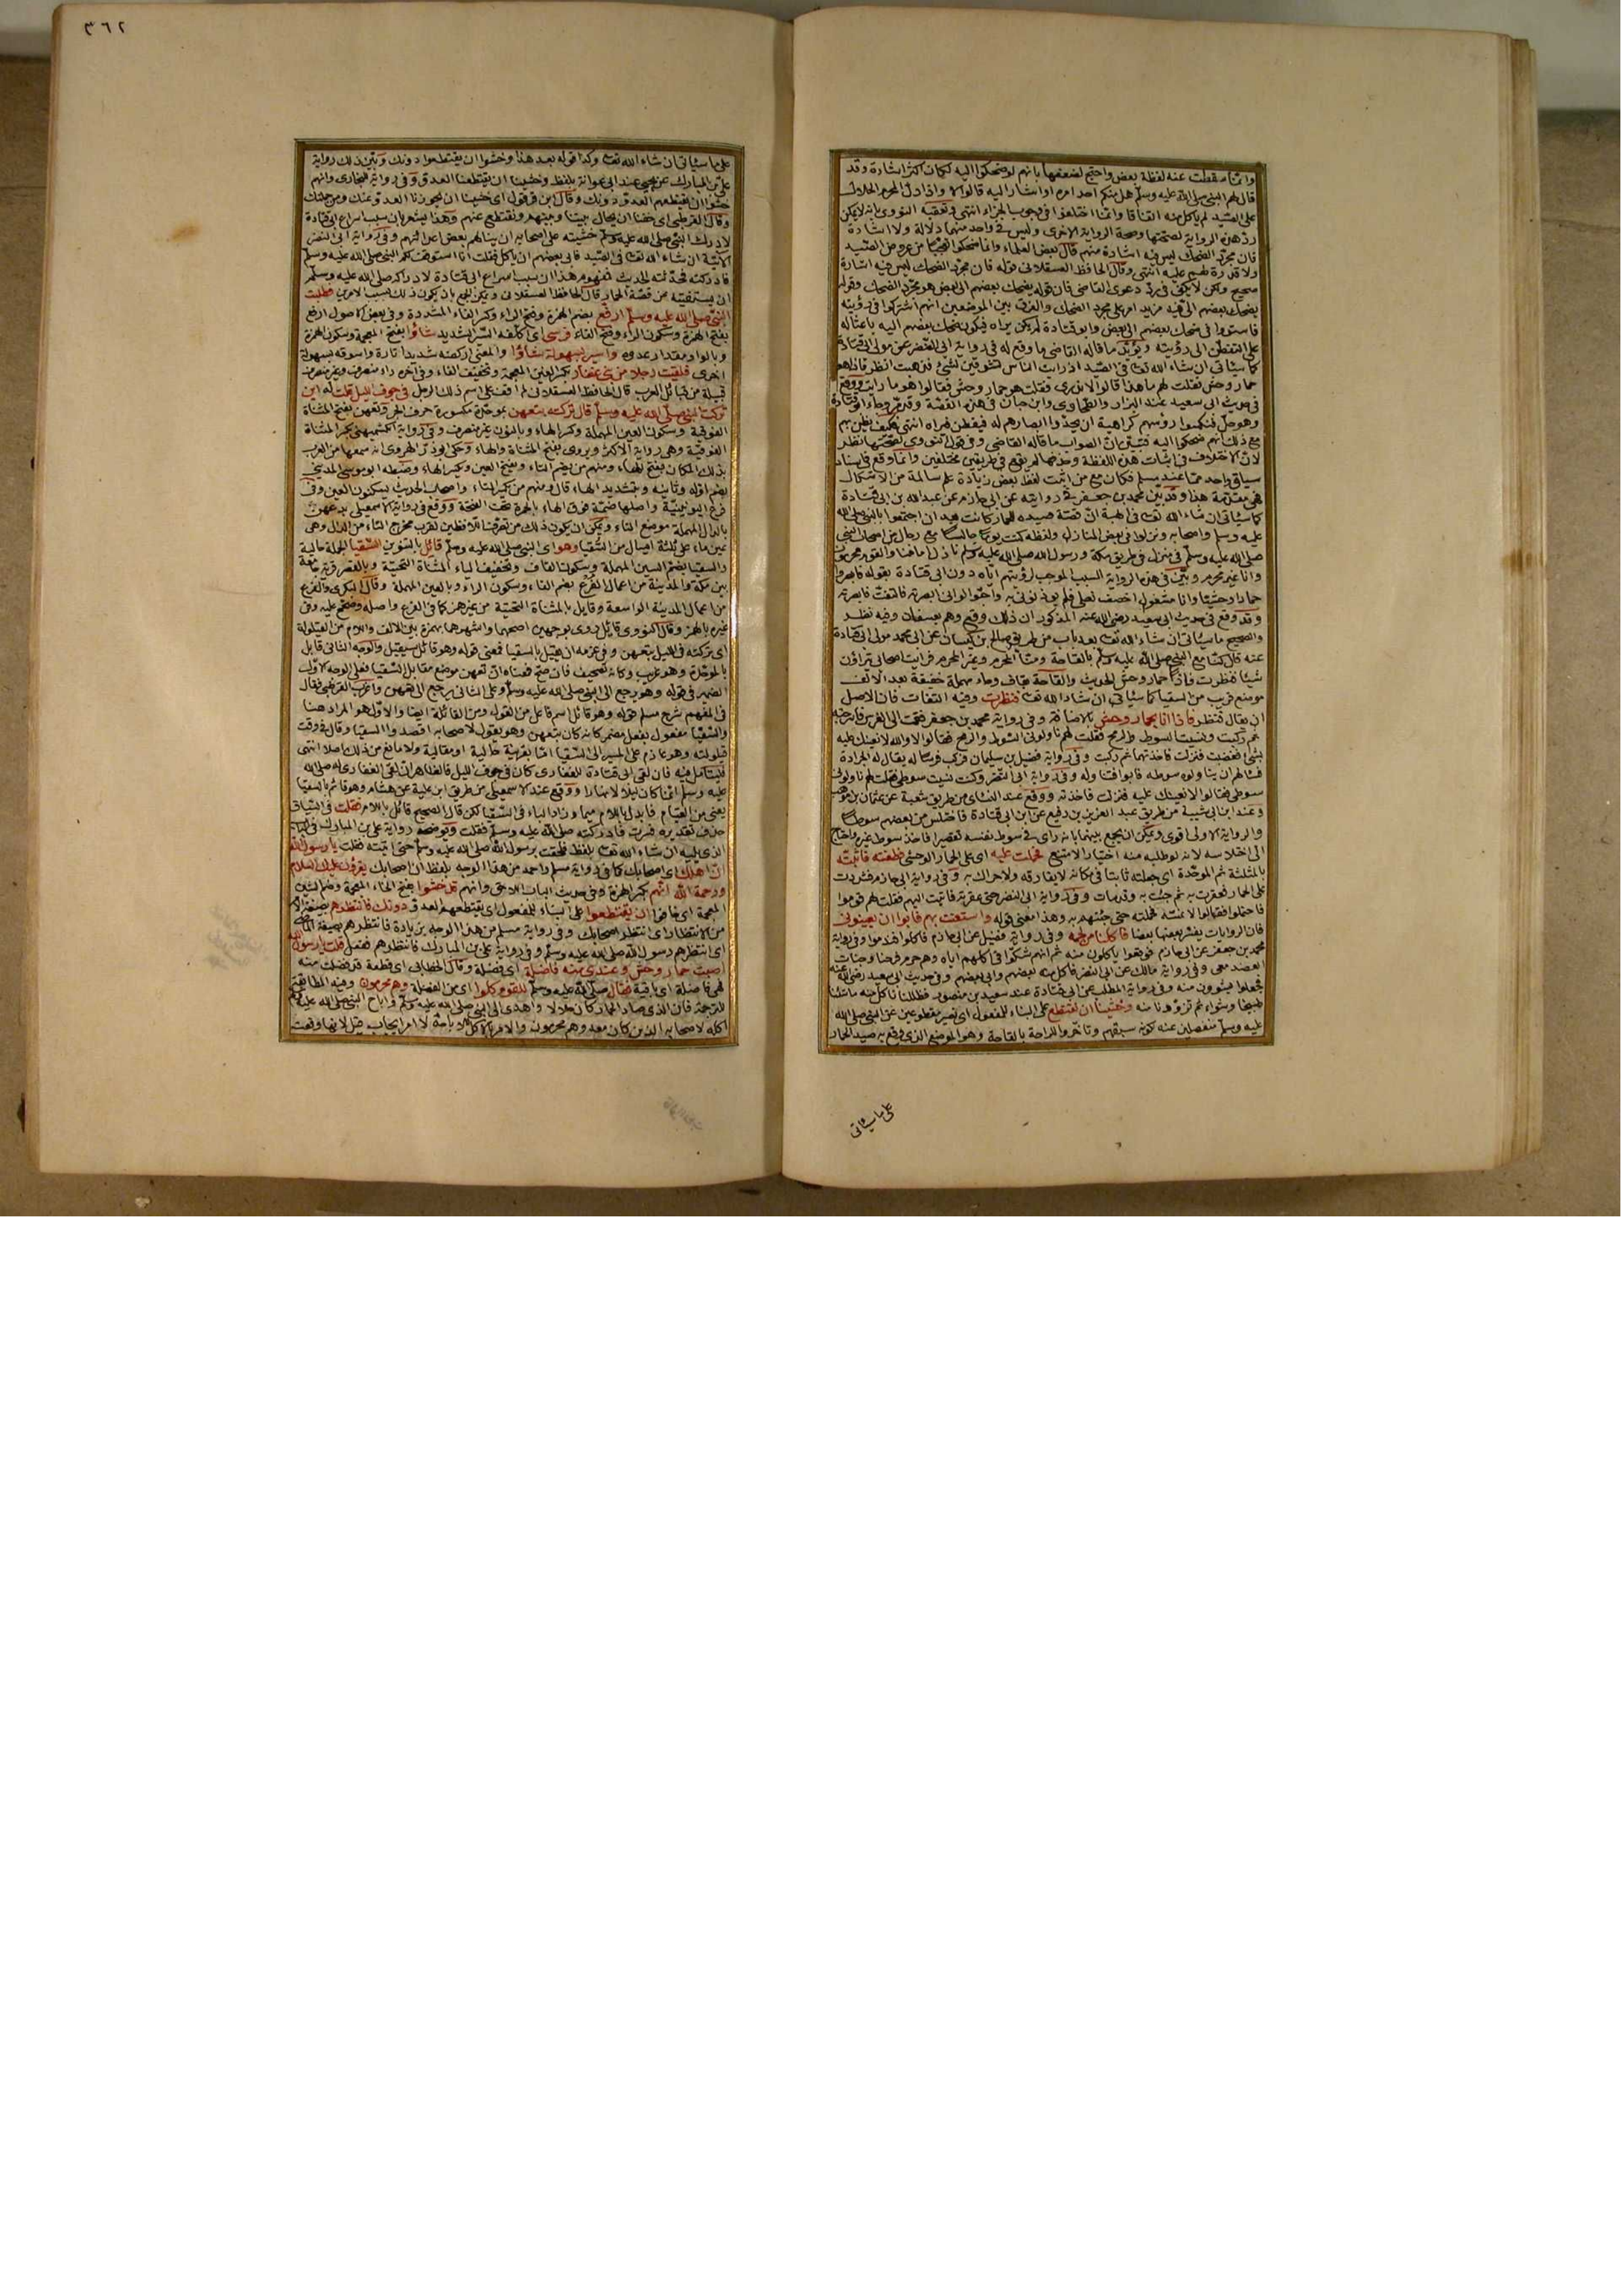 ٣٦٢
وانما سقطت عنه لفظة بعض واحتج لضعفها بانهم لو ضحكوا اليه لكان اكثر اشارة وقد
قال لهم النبي صلى الله عليه وسلم هل منكم احد امره او اشار اليه قالوا لا واذا دل المحرم الحلال
على الصيد لم ياكل منه اتفاقا وانما اختلفوا في وجوب الجزاء انتهى وتعقبه النووي بانه لا يمكن
رد هذه الرواية لصحتها وصحة الرواية الاخرى وليس في واحد منهما دلالة ولا اشارة
فان مجرد الضحك ليس فيه اشارة منهم قال بعض العلماء وانما ضحكوا تعجبا من عروض الصيد
ولا قدرة لهم عليه انتهى وقال الحافظ العسقلاني قوله فان مجرد الضحك ليس فيه اشارة
صحيح ولكن لا يكفي في رد دعوى القاضي فان قوله يضحك بعضهم الى بعض هو مجرد الضحك وقوله
يضحك بعضهم الي فيه مزيد امر على مجرد الضحك والفرق بين الموضعين انهم اشتركوا في رؤيته
فاستووا في ضحك بعضهم الى بعض وابو قتادة لم يكن يراه فيكون ضحك بعضهم اليه باعثا له
على التفطن الى رؤيته ويؤيد ما قاله القاضي ما وقع له في رواية ابي النضر عن مولى ابي قتادة
كما سيأتي ان شاء الله تعا في الصيد اذ رايت الناس متشوقين لشئ فذهبت انظر فاذا هو
حمار وحش فقلت لهم ما هذا قالوا لا ندري فقلت هو حمار وحش فقالوا هو ما رايت ووقع
في حديث ابي سعيد عند البزار والطحاوي وابن حبان في هذه القصة وقد وجاء ابو قتادة
وهو حل فنكسوا رؤسهم كراهية ان يحدوا ابصارهم له فيفطن فيراه انتهى فكيف يظن بهم
مع ذلك انهم ضحكوا اليه فتبين ان الصواب ما قاله القاضي وفي قول النووي لصحتها نظر
لان الاختلاف في اثبات هذه اللفظة وحذفها لم يقع في طريقين مختلفين وانما وقع في اسناد
سياق واحد مما عند مسلم فكان مع من اثبت لفظ بعض زيادة علم سالمة من الاشكال
فهي مقدمة هذا وقد بين محمد بن جعفر في روايته عن ابي حازم عن عبد الله بن ابي قتادة
كما سيأتي ان شاء الله تعا في الهبة ان قصة صيده للحمار كانت بعد ان اجتمعوا بالنبي صلى الله
عليه وسلم واصحابه ونزلوا في بعض المنازل ولفظه كنت يوما جالسا مع رجال من اصحاب النبي
صلى الله عليه وسلم في منزل في طريق مكة ورسول الله صلى الله عليه وسلم نازل امامنا والقوم محرمون
وانا غير محرم وبين في هذه الرواية السبب الموجب لرؤيتهم اياه دون ابي قتادة بقوله فابصروا
حمارا وحشيا وانا مشغول اخصف نعلي فلم يوذنوني به واحبوا لو اني ابصرته فالتفت فابصرته
وقد وقع في حديث ابي سعيد رضي الله عنه المذكور ان ذلك وقع وهم بعسفان وفيه نظر
والصحيح ما سيأتي ان شاء الله تعا بعد باب من طريق صالح بن كيسان عن ابي محمد مولى ابي قتادة
عنه قال كنا مع النبي صلى الله عليه وسلم بالقاحة ومنا المحرم وغير المحرم فرايت اصحابي يتراؤن
شيئا فنظرت فاذا حمار وحش الحديث والقاحة بقاف وحاء مهملة خفيفة بعد الالف
موضع قريب من السقيا كما سيأتي ان شاء الله تعا فنظرت وفيه التفات فان الاصل
ان يقال فنظر فاذا انا بحمار وحش بالاضافة وفي رواية محمد بن جعفر فقمت الى الفرس فاسرجته
ثم ركبت ونسيت السوط والرمح فقلت لهم ناولوني السوط والرمح فقالوا لا والله لا نعينك عليه
بشئ فغضبت فنزلت فاخذتهما ثم ركبت وفي رواية فضيل بن سليمان فركب فرسا له يقال له الجرادة
فسألهم ان يناولوه سوطه فابوا فتناوله وفي رواية ابي النضر وكنت نسيت سوطي فقلت لهم ناولوني
سوطي فقالوا لا نعينك عليه فنزلت فاخذته ووقع عند النسائي من طريق شعبة عن عثمان بن موهب
وعند ابن ابي شيبة من طريق عبد العزيز بن رفيع عن ابن ابي قتادة فاختلس من بعضهم سوطا
والرواية الاولى اقوى ويمكن ان يجمع بينهما بانه راى في سوط نفسه تقصيرا فاخذ سوط غيره واحتاج
الى اختلاسه لانه لو طلبه منه اختيارا لامتنع فحملت عليه اي على الحمار الوحشي فطعنته فاثبته
بالمثلثة ثم الموحدة اي جعلته ثابتا في مكانه لا يفارقه ولا حراك به وفي رواية ابي حازم فشددت
على الحمار فعقرته ثم جئت به وقد مات وفي رواية ابي النضر حتى عقرته فاتيت اليهم فقلت لهم قوموا
فاحتملوا فقالوا لا نمسه فحملته حتى جئتهم به وهذا معنى قوله واستعنت بهم فابوا ان يعينوني
فان الروايات يفسر بعضها بعضا فاكلنا من لحمه وفي رواية فضيل عن ابي حازم فاكلوا فندموا وفي رواية
محمد بن جعفر عن ابي حازم فوقعوا ياكلون منه ثم انهم شكوا في اكلهم اياه وهم حرم فرحنا وخبات
العضد معي وفي رواية مالك عن ابي النضر فاكل منه بعضهم وابى بعضهم وفي حديث ابي سعيد رضي الله عنه
فجعلوا يشوون منه وفي رواية المطلب عن ابي قتادة عند سعيد بن منصور فظللنا ناكل منه ما شئنا
طبيخا وشواء ثم تزودنا منه وخشينا ان نقتطع على البناء للمفعول اي نصير مقطوعين عن النبي صلى الله
عليه وسلم منفصلين عنه لكونه سبقهم وتاخروا للراحة بالقاحة وهو الموضع الذي وقع به صيد الحمار
على ما سيأتي
على ما سيأتي ان شاء الله تعا وكذا قوله بعد هذا وخشوا ان يقتطعوا دونك وبين ذلك رواية
علي بن المبارك عن يحيى عند ابي عوانة بلفظ وخشينا ان يقتطعنا العدو وفي رواية البخاري وانهم
خشوا ان يقتطعهم العدو دونك وقال ابن قرقول اي خشينا ان يحوزنا العدو عنك ومن حملك
وقال القرطبي اي خفنا ان يحال بيننا وبينهم ونقتطع عنهم وهذا يشعر بان سبب اسراع ابي قتادة
لادراك النبي صلى الله عليه وسلم خشيته على اصحابه ان ينالهم بعض اعدائهم وفي رواية ابي النضر
الاتية ان شاء الله تعا في الصيد فابى بعضهم ان ياكل فقلت انا استوقف لكم النبي صلى الله عليه وسلم
فادركته فحدثته الحديث فمفهوم هذا ان سبب اسراع ابي قتادة لادراكه صلى الله عليه وسلم
ان يستفتيه عن قصة الحمار قال الحافظ العسقلاني ويمكن الجمع بان يكون ذلك بسبب الامرين فطلبت
النبي صلى الله عليه وسلم ارفع بضم الهمزة وفتح الراء وكسر الفاء المشددة وفي بعض الاصول ارفع
بفتح الهمزة وسكون الراء وفتح الفاء فرسي اي اكلفه السير الشديد شاؤا بفتح المعجمة وسكون الهمزة
وبالواو مقدار عدوه واسير بسهولة شاؤا والمعنى اركضه شديدا تارة واسوقه بسهولة
اخرى فلقيت رجلا من بني غفار بكسر الغين المعجمة وتخفيف الفاء وفي اخره راء منصرف وغير منصرف
قبيلة من قبائل العرب قال الحافظ العسقلاني لم اقف على اسم ذلك الرجل في جوف الليل قلت له اين
تركت النبي صلى الله عليه وسلم قال تركته بتعهن بموحدة مكسورة حرف الجر وتعهن بفتح المثناة
الفوقية وسكون العين المهملة وكسر الهاء وبالنون غير منصرف وفي رواية الكشميهني بكسر المثناة
الفوقية وهي رواية الاكثر ويروى بفتح المثناة والهاء وحكى ابو ذر الهروي انه سمعها من العرب
بذلك المكان بفتح الهاء ومنهم من يضم التاء ويفتح العين ويكسر الهاء وضبطه ابو موسى المديني
بضم اوله وثانيه وبتشديد الهاء قال ومنهم من يكسر التاء واصحاب الحديث يسكنون العين وفي
فرع اليونينية واصلها ضمة فوق الهاء بالحمرة تحت الفتحة ووقع في رواية الاسمعيلي بدعهن
بالدال المهملة موضع التاء ويمكن ان يكون ذلك من تصرفنا اللافظين لقرب مخرج التاء من الدال وهي
عين ماء على ثلثة اميال من السقيا وهو اي النبي صلى الله عليه وسلم قائل بالتنوين السقيا الجملة حالية
والسقيا بضم السين المهملة وسكون القاف وتخفيف الياء المثناة التحتية وبالقصر قرية جامعة
بين مكة والمدينة من اعمال الفرع بضم الفاء وسكون الراء وبالعين المهملة وقال البكري والفرع
من اعمال المدينة الواسعة وقايل بالمثناة التحتية من غير همز كما في الفرع واصله وصحح عليه وفي
غيره بالهمز وقال النووي قائل روى بوجهين اصحهما واشهرهما بهمزة بين الالف واللام من القيلولة
اي تركته في الليل بتعهن وفي عزمه ان يقيل بالسقيا فمعنى قوله وهو قائل سيقيل والوجه الثاني قابل
بالموحدة وهو غريب وكانه تصحيف فان صح فمعناه ان تعهن موضع مقابل السقيا فعلى الوجه الاول
الضمير في قوله وهو يرجع الى النبي صلى الله عليه وسلم وعلى الثاني يرجع الى تعهن واغرب القرطبي فقال
في المفهم شرح مسلم قوله وهو قائل اسم فاعل من القول ومن القائلة ايضا والاول هو المراد هنا
والسقيا مفعول بفعل مضمر كانه كان بتعهن وهو يقول لاصحابه اقصدوا السقيا وقال في وقت
قيلولته وهو عازم على المسير الى السقيا اما بقرينة حالية او مقالية ولا مانع من ذلك اصلا انتهى
فليتامل فيه فان لقي ابي قتادة للغفاري كان في جوف الليل فالظاهر ان لقي الغفاري له صلى الله
عليه وسلم انما كان ليلا لا نهارا ووقع عند الاسمعيلي من طريق ابن علية عن هشام وهو قائم بالسقيا
يعني من القيام فابدل باللام ميما وزاد الباء في السقيا لكن قال الصحيح قائل باللام فقلت في السياق
حذف تقديره فسرت فادركته صلى الله عليه وسلم فقلت وتوضحه رواية علي بن المبارك في الباب
الذي يليه ان شاء الله تعا بلفظ فلحقت برسول الله صلى الله عليه وسلم حتى اتيته فقلت يا رسول الله
ان اهلك اي اصحابك كما في رواية مسلم واحمد من هذا الوجه بلفظ ان اصحابك يقرؤن عليك السلام
ورحمة الله انهم بكسر الهمزة وفي حديث الباب الاتي وانهم قد خشوا بفتح الخاء المعجمة وضم الشين
المعجمة اي خافوا ان يقتطعوا على البناء للمفعول اي يقتطعهم العدو دونك فانتظرهم بصيغة الامر
من الانتظار اي انتظر اصحابك وفي رواية مسلم من هذا الوجه بزيادة فانتظرهم بصيغة الماضي
اي انتظرهم رسول الله صلى الله عليه وسلم وفي رواية علي بن المبارك فانتظرهم ففعل قلت يا رسول الله
اصبت حمار وحش وعندي منه فاضلة اي فضلة وقال الخطابي اي قطعة قد فضلت منه
فهي فاضلة اي باقية فقال صلى الله عليه وسلم للقوم كلوا اي من الفضلة وهم محرمون وفيه المطابقة
للترجمة فان الذي صاد الحمار كان حلالا واهدى الى النبي صلى الله عليه وسلم واباح النبي صلى الله عليه وسلم
اكله لاصحابه الذين كان معه وهم محرمون والامر بالاكل للاباحة لا امر ايجاب قيل لانها وقعت